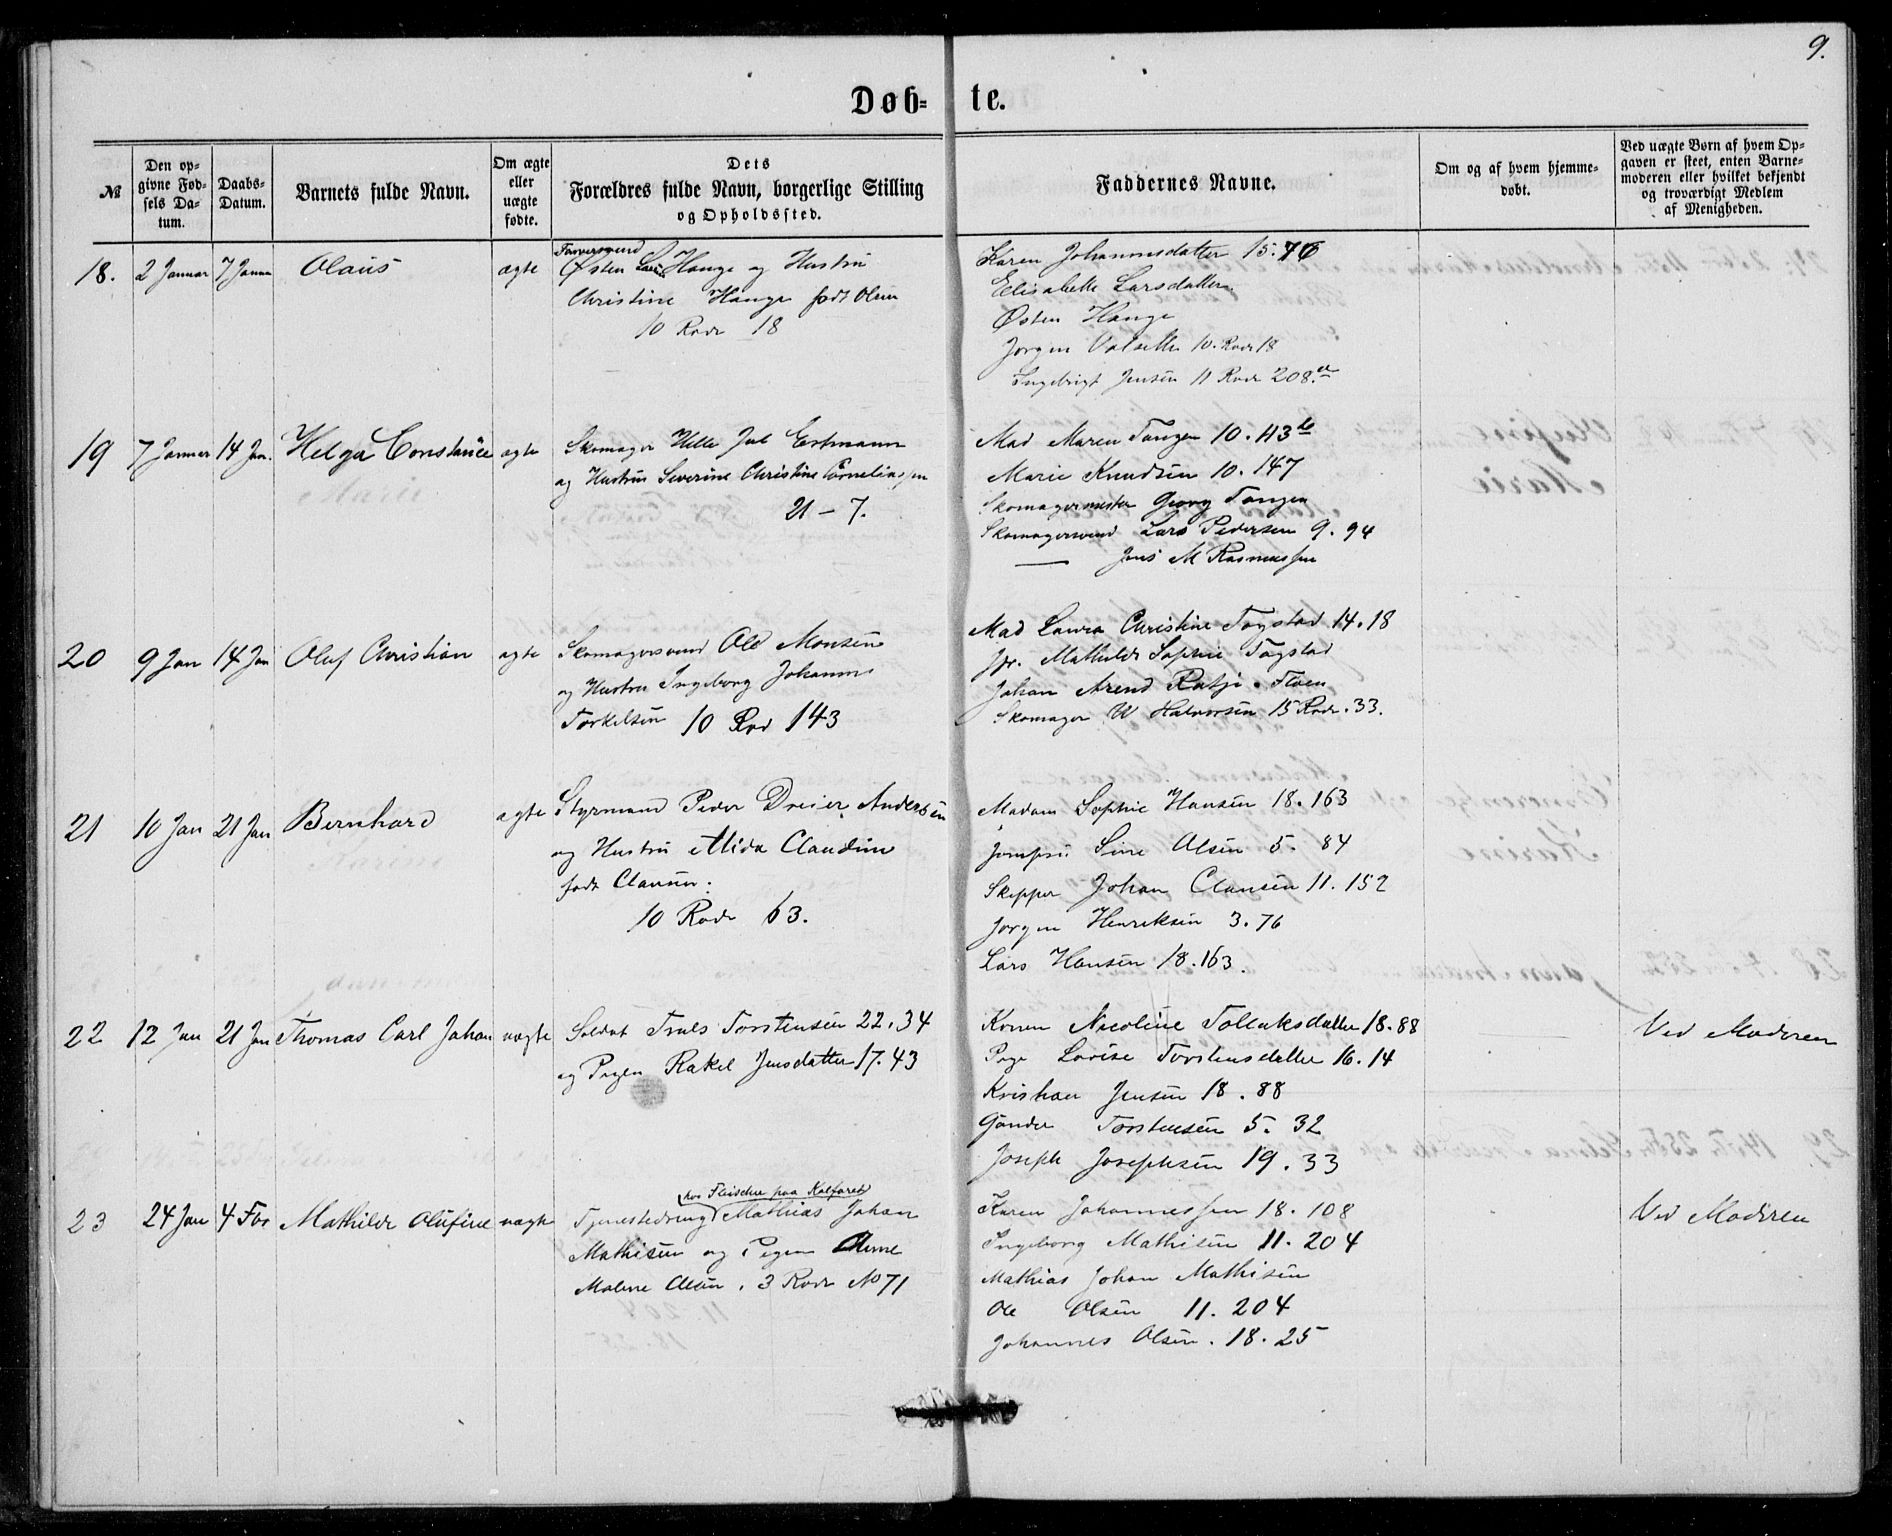 9.
Døb- te.
№
Den op-
givne Fød-
sels Da-
tum.
Daabs-
Datum.
Barnets fulde Navn.
Om ægte
eller
uægte
fødte.
Dets
Forældres fulde Navn, borgerlige Stilling
og Opholdssted.
Faddernes Navne.
Om og af hvem hjemme-
døbt.
Ved uægte Børn af hvem Op-
gaven er skeet, enten Barne-
moderen eller hvilket bekjendt
og troværdigt Medlem
af Menigheden.
18. 2 Januar 7 Janua Olaus ægte
Farversvend
Østen Hauge og Hustru
Christine Hauge født Olsen
10 Rode 18
Karen Johannesdatter 15.76
Elisabeth Larsdatter
Østen Hauge
Jørgen Valsette 10. Rode 18
Ingebrigt Jensen 11 Rode 208.a
19 7 Januar 14 Jan. Helga Constance ægte
Skomager Helle Jul Ertmann
og Hustru Severine Christine Corneliussen
21 - 7.
Mad Maren Tangen 10. 43 b
Marie Knudsen 10. 147
Skomagermester Georg Tangen
Skomagersvend Lars Pedersen 9. 94
— Jens M Rasmussen
20 9 Jan 14 Jan Oluf Christian ægte
Skomagersvend Ole Monsen
og Hustru Ingeborg Johanne
Torkelsen 10 Rod 143
Mad Laura Christine Togstad 14.18
Jfr. Mathilde Sophie Togstad
Johan Arend Ratje. Floen
Skomager W Halvorsen 15 Rode. 33.
21 10 Jan 21 Jan Bernhard ægte
Styrmand Peder Dreier Andersen
og Hustru Alida Claudine
født Clausen.
10 Rode 63.
Madam Sophie Hansen 18. 163
Jomfru Sine Olsen 5. 84
Skipper Johan Clausen 11. 152
Jørgen Henriksen 3. 76
Lars Hansen 18. 163.
22 12 Jan 21 Jan Thomas Carl Johan uægte
Soldat Truls Torstensen 22. 34
og Pigen Rakel Jensdatter 17. 43
Konen Nicoline Tollaksdatter 18. 88
Pige Lovise Torstensdatter 16. 14
Kristian Jensen 18. 88
Gunder Torstensen 5. 32
Joseph Josephsen 19. 33
Ved Moderen
23 24 Jan 4 Feb Mathilde Olufine uægte
hos Fleischer paa Kalfaret
Tjenestedreng Mathias Johan
Mathisen og Pigen Anne
Malene Olsen. 3 Rode No 71
Karen Johannessen 18. 108
Ingeborg Mathisen 11. 204
Mathias Johan Mathisen
Ole Olsen 11. 204
Johannes Olsen. 18. 25
Ved Moderen